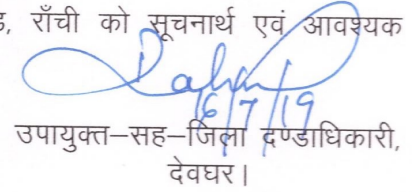 , राँची को सूचनार्थ एवं आवश्यक
6/7/19
उपायुक्त–सह–जिला दण्डाधिकारी,
देवघर।